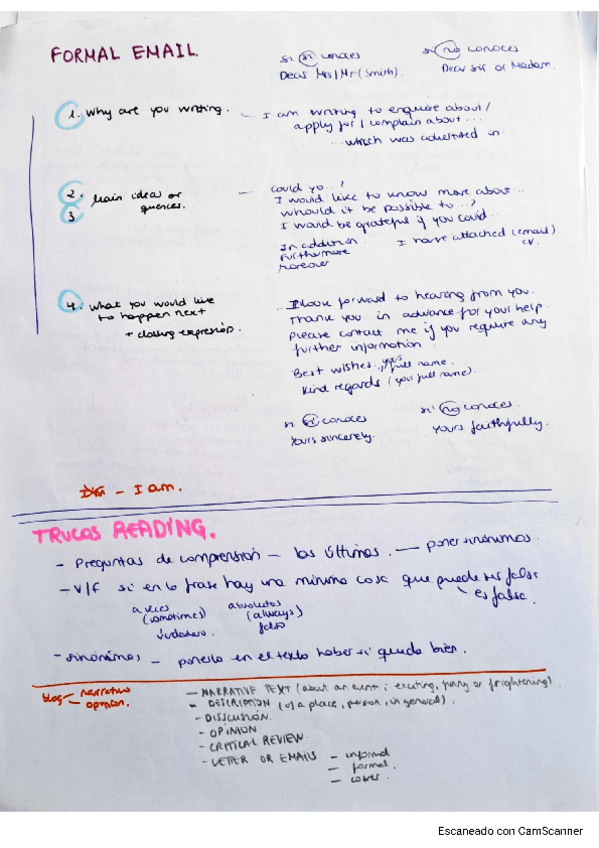 FORMAL EMAIL.
si si conoces
Dear Mrs/Mr (Smith).
si no conoces
Dear sir or Madam.
1. Why are you writing. - I am writing to enquire about/
apply for / complain about ...
... which was advertised in...
2. Main ideas or
3
- Could yo...?
I would like to know more about...
Whould it be possible to...?
I would be grateful if you could...
In addition
Furthermore
Moreover
I have attached (email)
cv.
4. What you would like
to happen next
+ closing expresión.
- I look forward to hearing from you.
Thank you in advance for your help.
Please contact me if you require any
further information
Best wishes, your full name.
Kind regards (your full name).
si si conoces
Yours sincerely.
si no conoces.
Yours faithfully.
- I am.
TRUCOS READING.
- Preguntas de comprensión - las últimas. - poner sinónimos.
- V/F si en la frase hay una mínima cosa que puede ser falsa
es falsa.
a veces
(sometimes)
verdadero.
absolutos
(always)
falso
- sinónimos - ponerlo en el texto haber si queda bien.
blog - narrativo
- opinion.
- NARRATIVE TEXT (about an event; exciting, funny or frightening).
- DESCRIPTION (of a place, person, in general).
- DISSCUSIÓN.
- OPINION
- CRITICAL REVIEW.
- LETTER OR EMAILS - informal
- formal.
- cover.
Escaneado con CamScanner